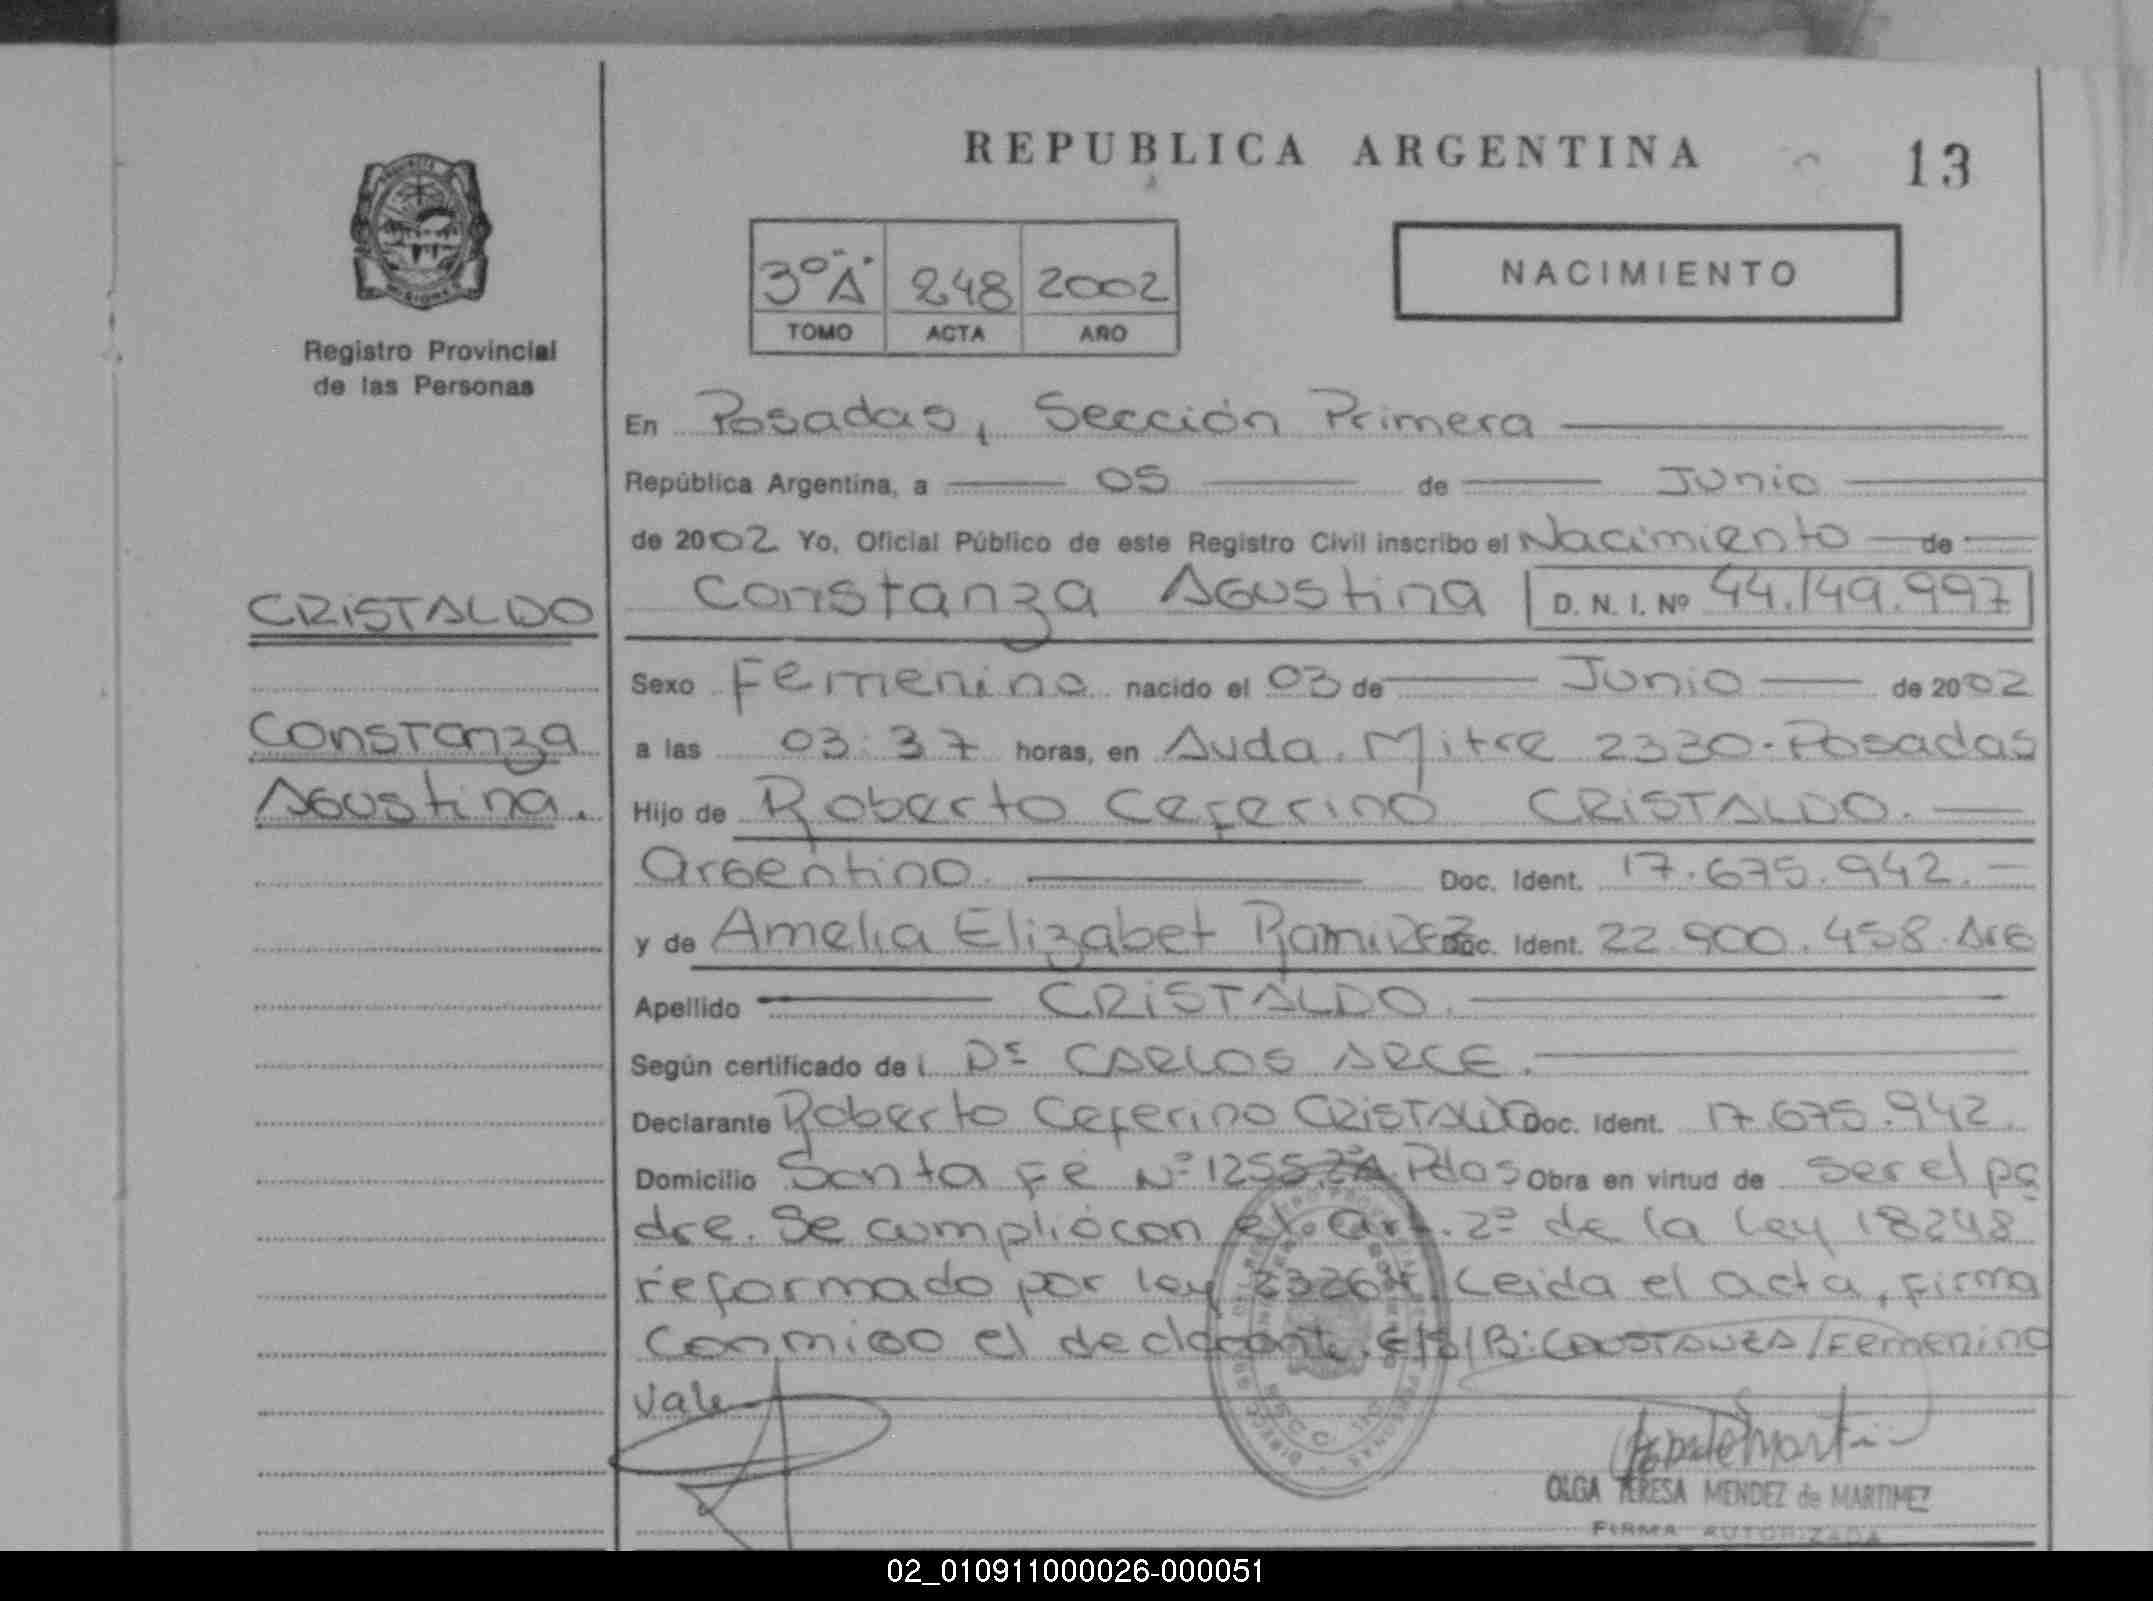 REPUBLICA ARGENTINA
13
MISIONES
Registro Provincial
de las Personas
3º "A" 248 2002
TOMO ACTA AÑO
NACIMIENTO
En Posadas, Sección Primera
República Argentina, a 05 de Junio
de 2002 Yo, Oficial Público de este Registro Civil inscribo el Nacimiento de
CRISTALDO
Constanza Agustina D. N. I. Nº 44.149.997
Sexo Femenino nacido el 03 de Junio de 2002
Constanza
a las 03:37 horas, en Avda. Mitre 2330-Posadas
Agustina.
Hijo de Roberto Ceferino CRISTALDO.
Argentino. Doc. Ident. 17.675.942.
y de Amelia Elizabet Ramirez Doc. Ident. 22.900.458. Arg
Apellido CRISTALDO.
Según certificado de Dr CARLOS ARCE.
Declarante Roberto Ceferino CRISTALDO Doc. Ident. 17.675.942.
Domicilio Santa Fe Nº 1255 Pdas Obra en virtud de ser el pa
dre. Se cumplió con el art. 2º de la Ley 18248
reformado por ley 23264. Leida el acta, firma
conmigo el declarante. E/S/B: CONSTANZA/Femenino
Vale
OLGA TERESA MENDEZ de MARTINEZ
FIRMA AUTORIZADA
02_010911000026-000051